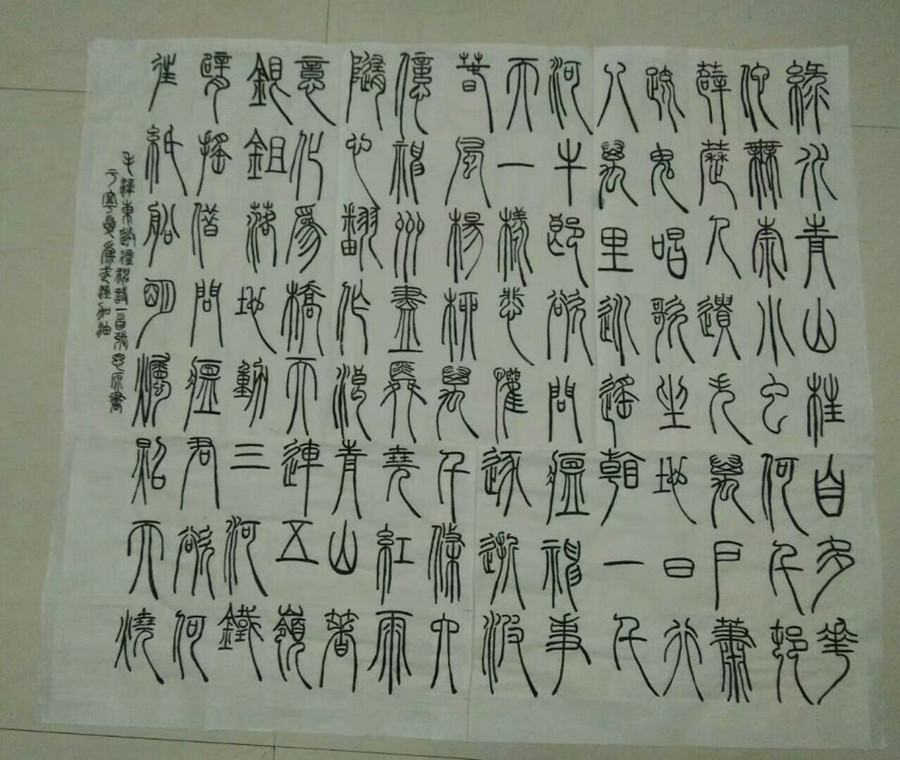 綠水青山枉自多華
佗無奈小虫何千邨
薜荔人遺矢萬戶蕭
疏鬼唱歌坐地日行
八萬里巡遙看一千
河牛郎欲問瘟神事
天一樣悲懽逐逝波
春風楊柳萬千條六
億神州盡舜堯紅雨
隨心翻作浪青山著
意化為橋天連五嶺
銀鉏落地動三河鐵
臂搖借問瘟君欲何
往紙船明燭照天燒
毛澤東送瘟神詩一首張思原書
于寧夏為武漢加油